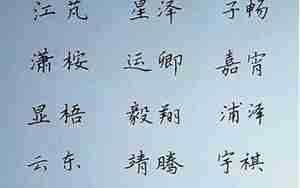 江芃 星泽 子畅
潇桉 运卿 嘉霄
显梧 毅翔 浦泽
云东 靖腾 宇祺